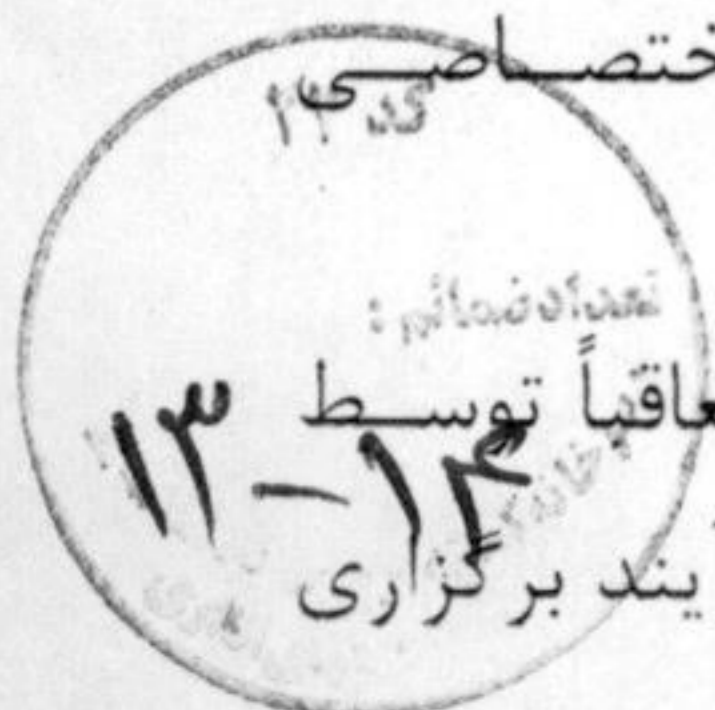 ختصاصی
کد ۲۲
تعداد ضمائم :
عاقباً توسط
۱۳-۱۴
یند برگزاری